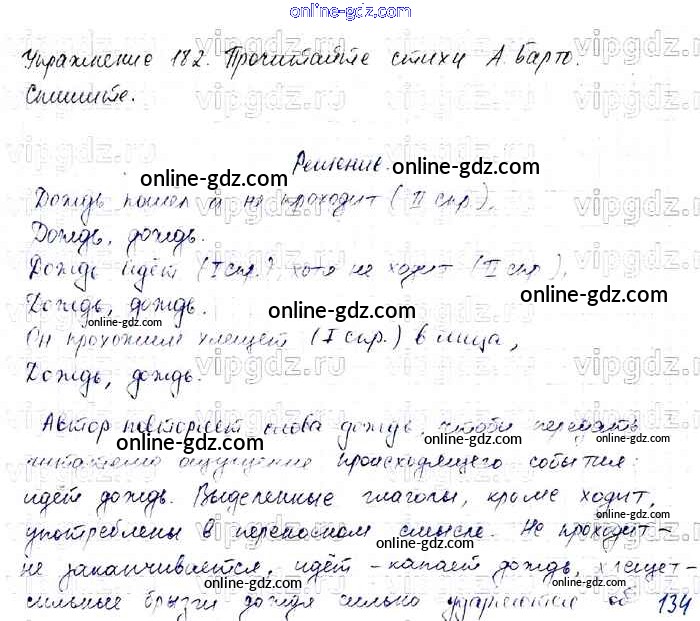 online-gdz.com
Упражнение 182. Прочитайте стихи А. Барто.
Спишите.
Решение.
online-gdz.com online-gdz.com
Дождь пошёл и не проходит (II спр.),
Дождь, дождь.
online-gdz.com
Дождь идёт (I спр.), хотя не ходит (II спр.),
online-gdz.com
Дождь, дождь.
online-gdz.com
Он прохожим хлещет (I спр.) в лица,
online-gdz.com
Дождь, дождь.
Автор повторяет слова дождь, чтобы передать
online-gdz.com online-gdz.com
читателю ощущение происходящего события:
идёт дождь. Выделенные глаголы, кроме ходит,
online-gdz.com
употреблены в переносном смысле. Не проходит -
online-gdz.com
не заканчивается, идёт - капает дождь, хлещет -
online-gdz.com online-gdz.com
сильные брызги дождя сильно ударяются об 134
vipgdz.ru